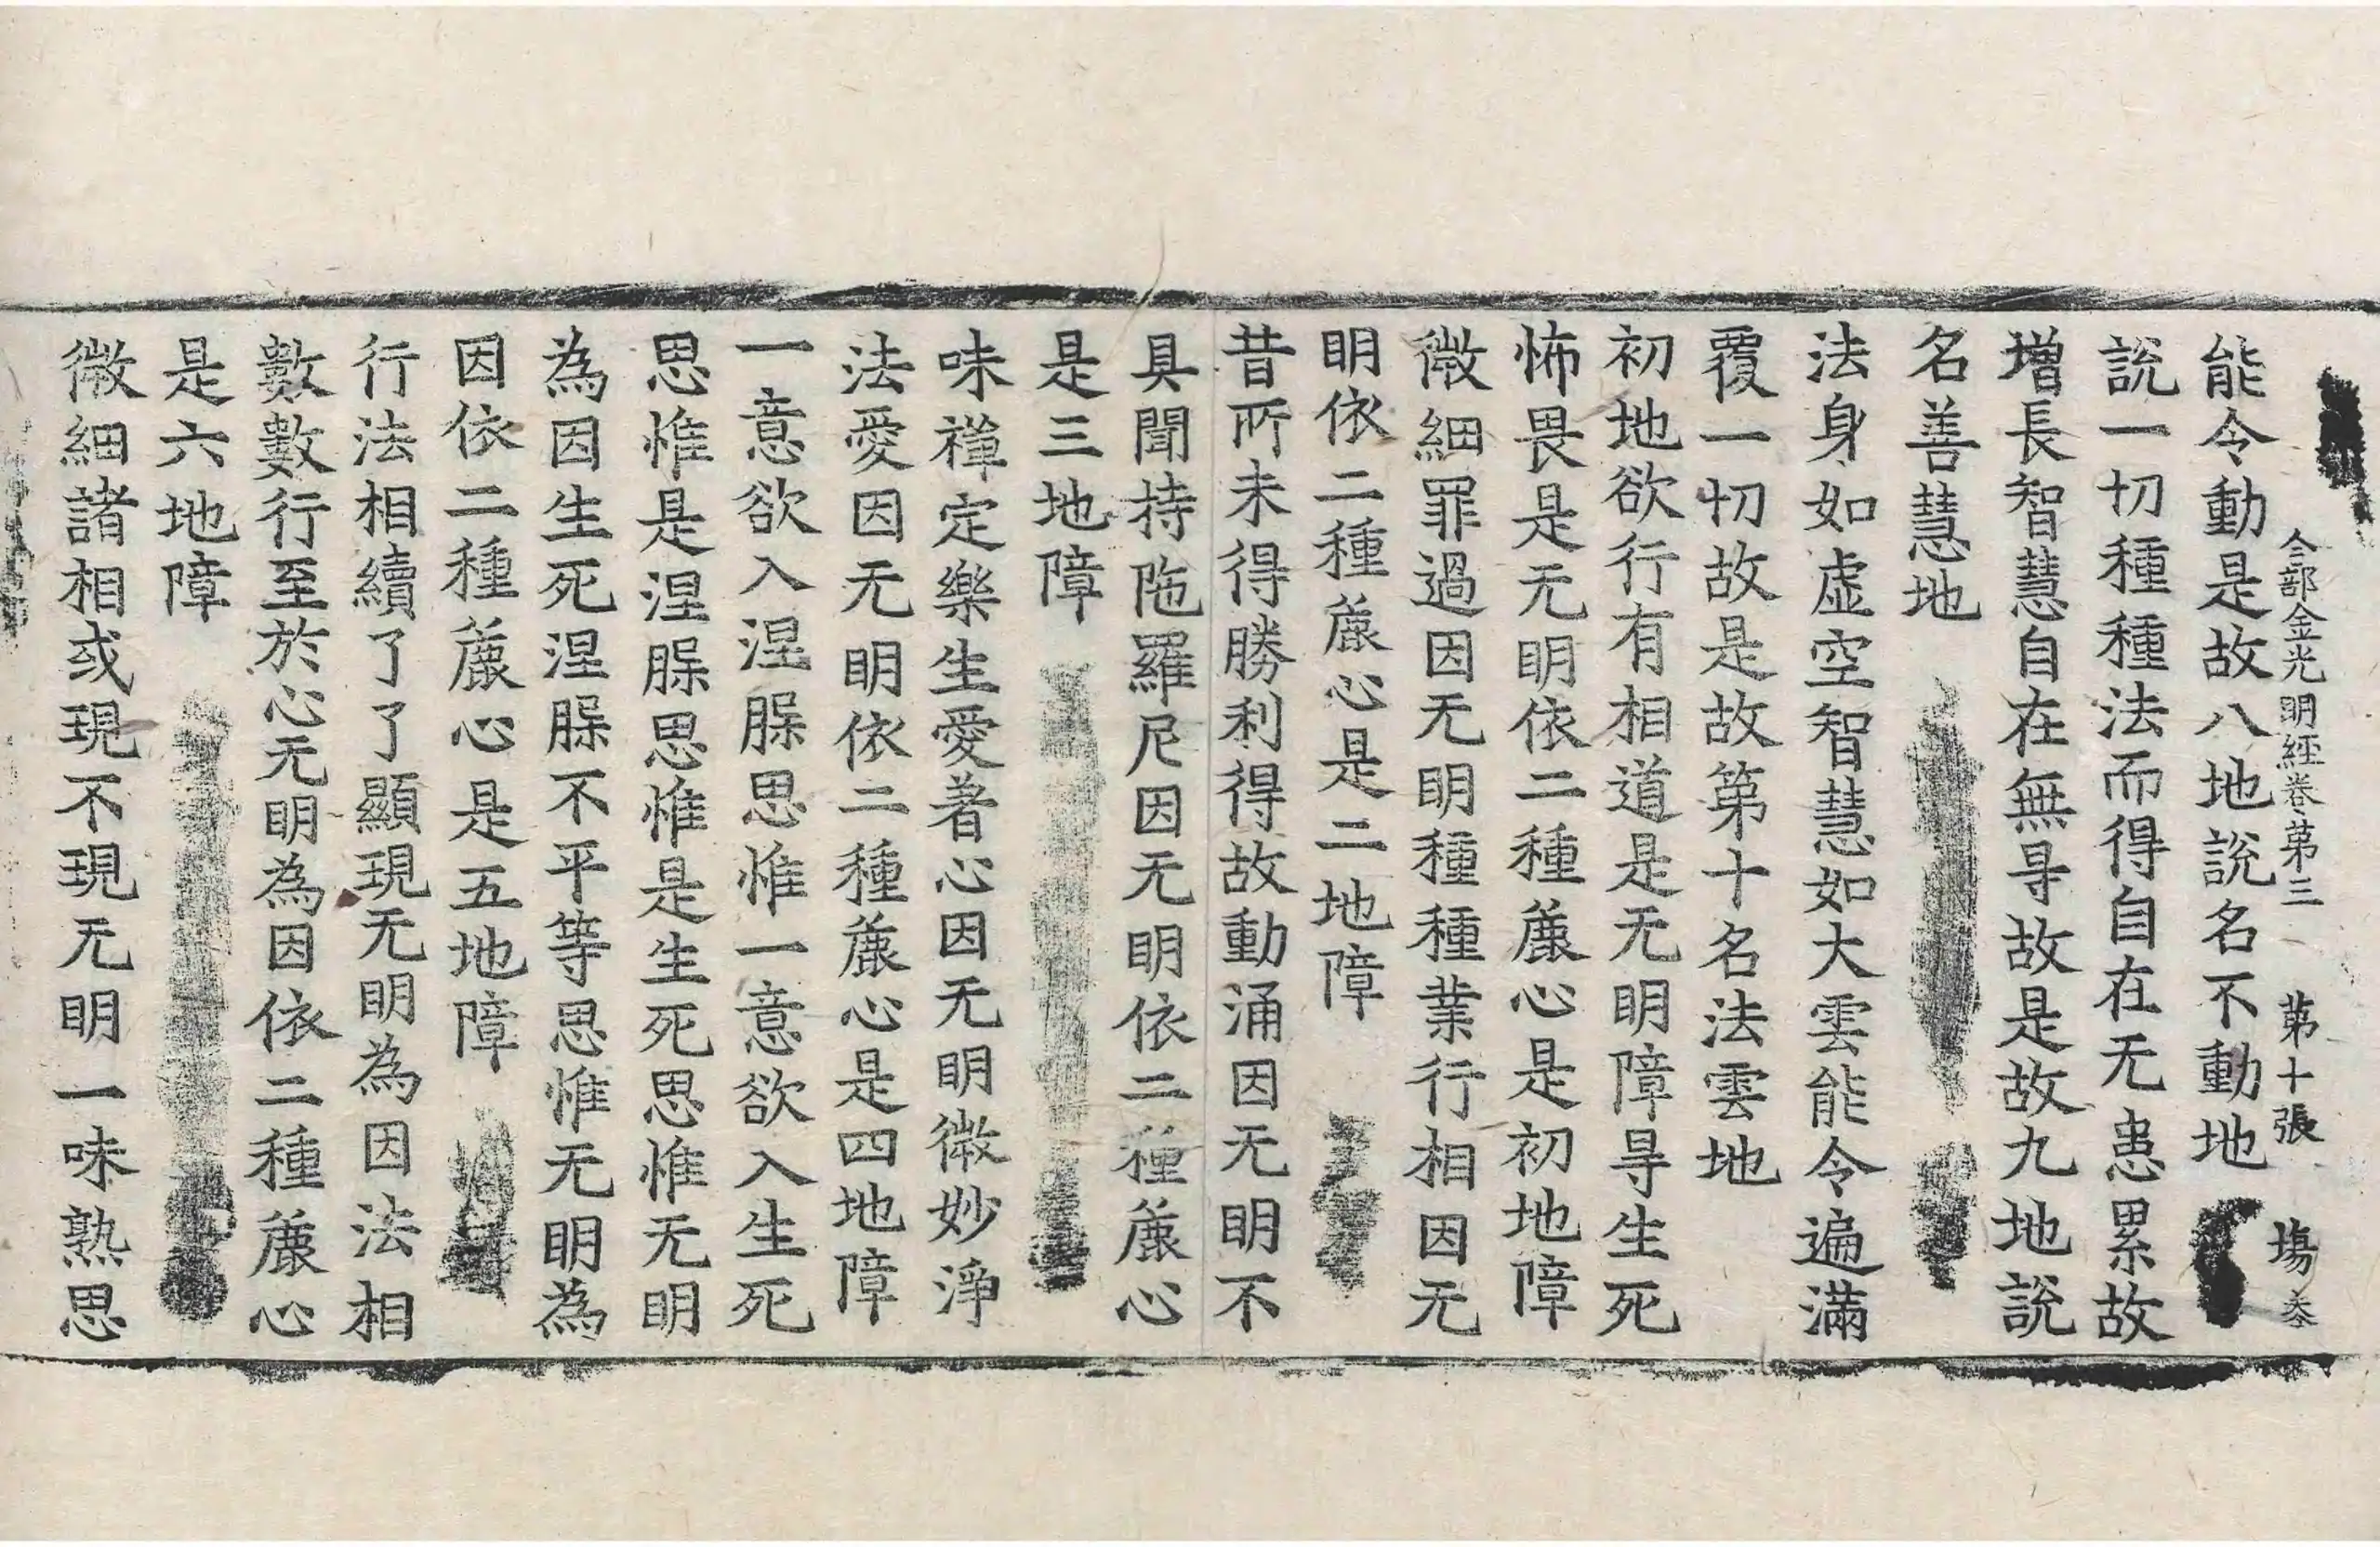 合部金光明經卷第三 第十張 塲
能令動是故八地說名不動地
說一切種種法而得自在无患累故
增長智慧自在無㝵故是故九地說
名善慧地
法身如虛空智慧如大雲能令遍滿
覆一切故是故第十名法雲地
初地欲行有相道是无明障㝵生死
怖畏是无明依二種麁心是初地障
微細罪過因无明種種業行相因无
明依二種麁心是二地障
昔所未得勝利得故動涌因无明不
具聞持陁羅尼因无明依二種麁心
是三地障
味禪定樂生愛著心因无明微妙淨
法愛因无明依二種麁心是四地障
一意欲入涅脲思惟一意欲入生死
思惟是涅脲思惟是生死思惟无明
為因生死涅脲不平等思惟无明為
因依二種麁心是五地障
行法相續了了顯現无明為因法相
數數行至於心无明為因依二種麁心
是六地障
微細諸相或現不現无明一味熟思